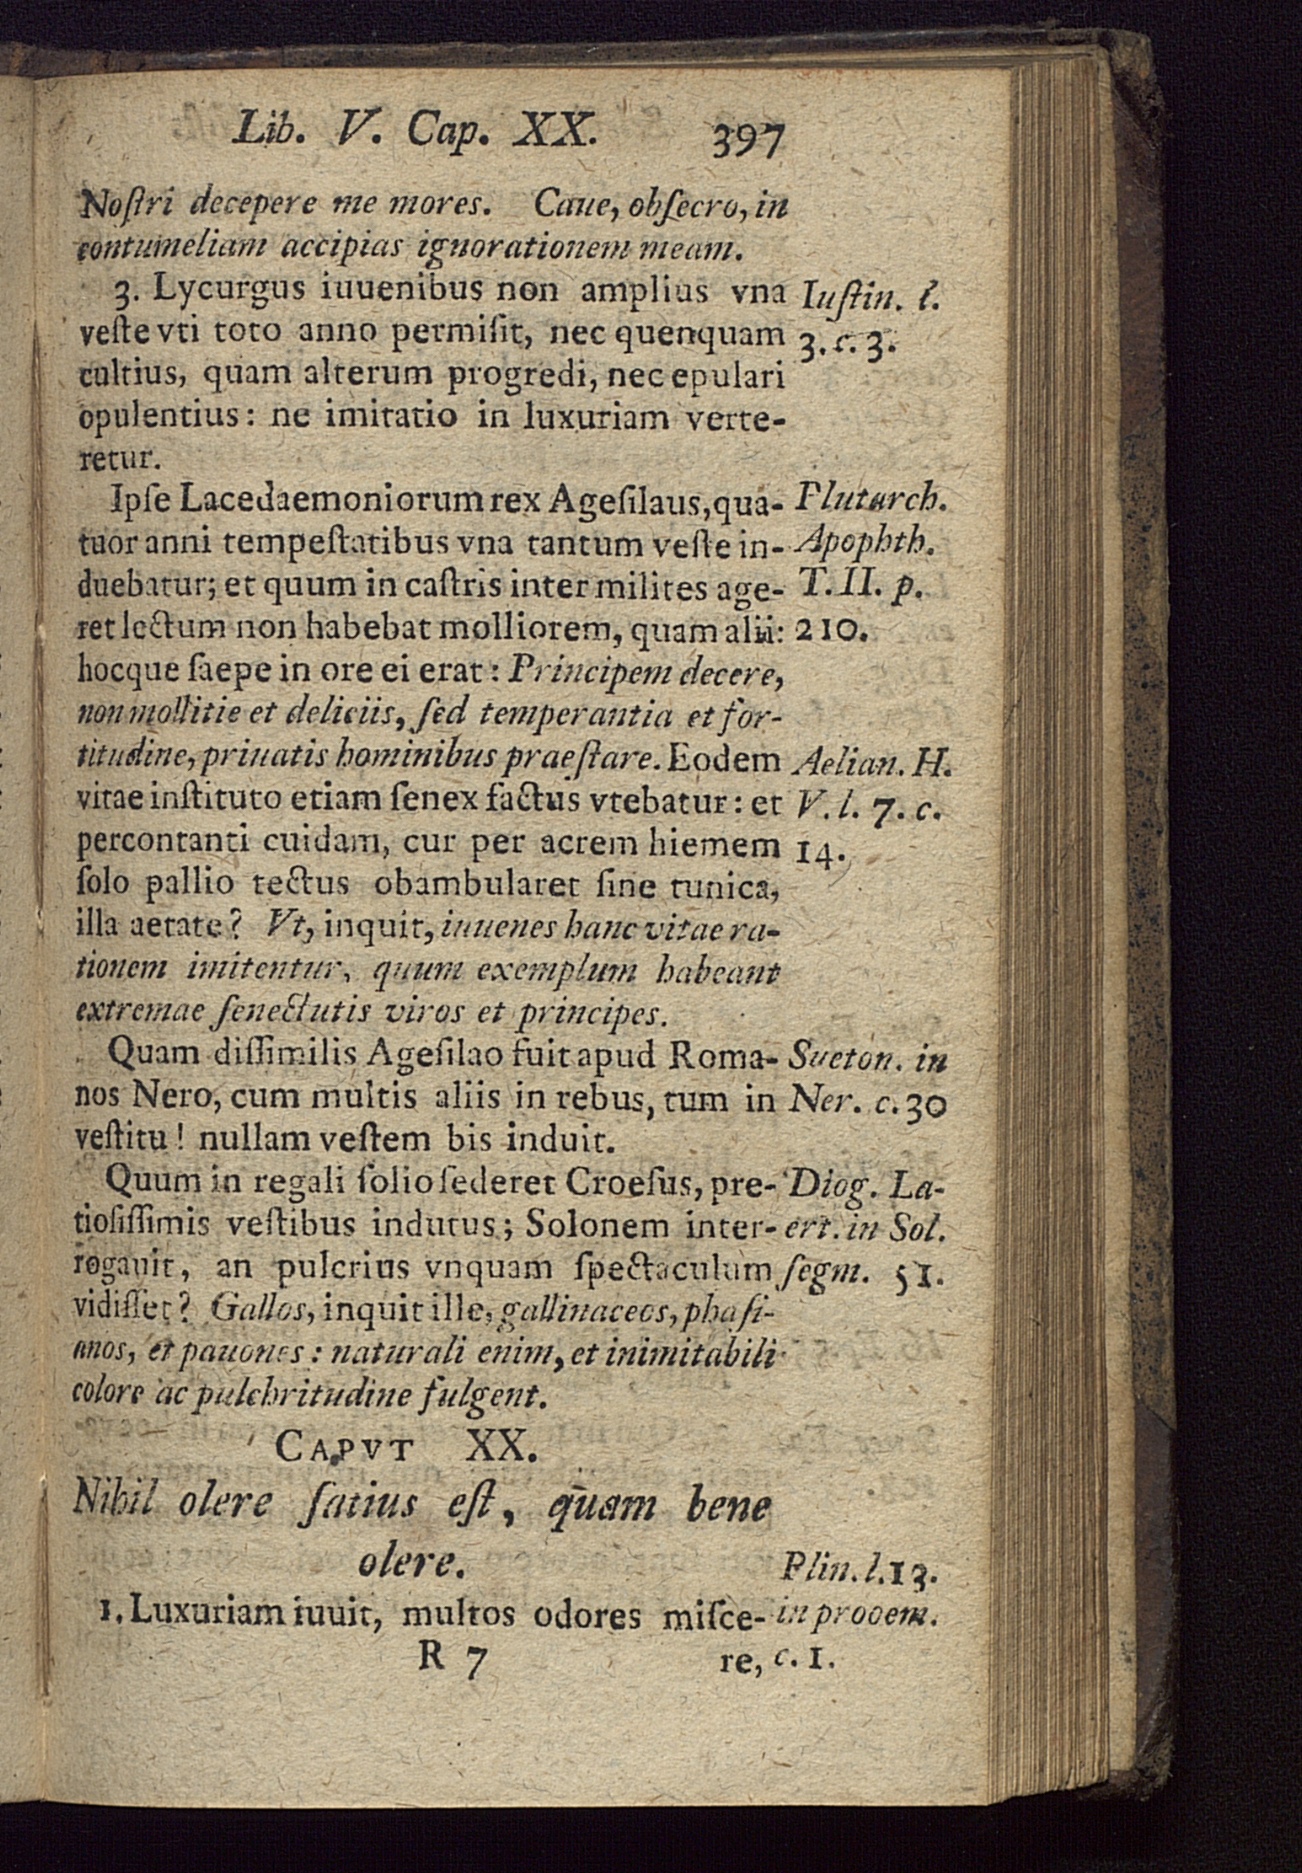 Lib. V. Cap. XX. 397
Noſtri decepere me mores. Caue, obſecro, in
contumeliam accipias ignorationem meam.
3. Lycurgus iuuenibus non amplius vna
veſte vti toto anno permiſit, nec quenquam
cultius, quam alterum progredi, nec epulari
opulentius: ne imitatio in luxuriam verte-
retur.
Iuſtin. l.
3. c. 3.
Ipſe Lacedaemoniorum rex Ageſilaus, qua-
tuor anni tempeſtatibus vna tantum veſte in-
duebatur; et quum in caſtris inter milites age-
ret lectum non habebat molliorem, quam alii:
hocque ſaepe in ore ei erat: Principem decere,
non mollitie et deliciis, ſed temperantia et for-
titudine, priuatis hominibus praeſtare. Eodem
vitae inſtituto etiam ſenex factus vtebatur: et
percontanti cuidam, cur per acrem hiemem
ſolo pallio tectus obambularet ſine tunica,
illa aetate? Vt, inquit, iuuenes hanc vitae ra-
tionem imitentur, quum exemplum habeant
extremae ſenectutis viros et principes.
Plutarch.
Apophth.
T. II. p.
210.
Aelian. H.
V. l. 7. c.
14.
Quam diſſimilis Ageſilao fuit apud Roma-
nos Nero, cum multis aliis in rebus, tum in
veſtitu! nullam veſtem bis induit.
Sueton. in
Ner. c. 30
Quum in regali ſolio ſederet Croeſus, pre-
tioſiſſimis veſtibus indutus; Solonem inter-
rogauit, an pulcrius vnquam ſpectaculum
vidiſſet? Gallos, inquit ille, gallinaceos, phaſi-
anos, et pauones: naturali enim, et inimitabili
colore ac pulchritudine fulgent.
Diog. La-
ert. in Sol.
ſegm. 51.
CAPVT XX.
Nihil olere ſatius eſt, quam bene
olere.
1. Luxuriam iuuit, multos odores miſce-
Plin. l. 13.
in prooem.
c. 1.
R 7 re,